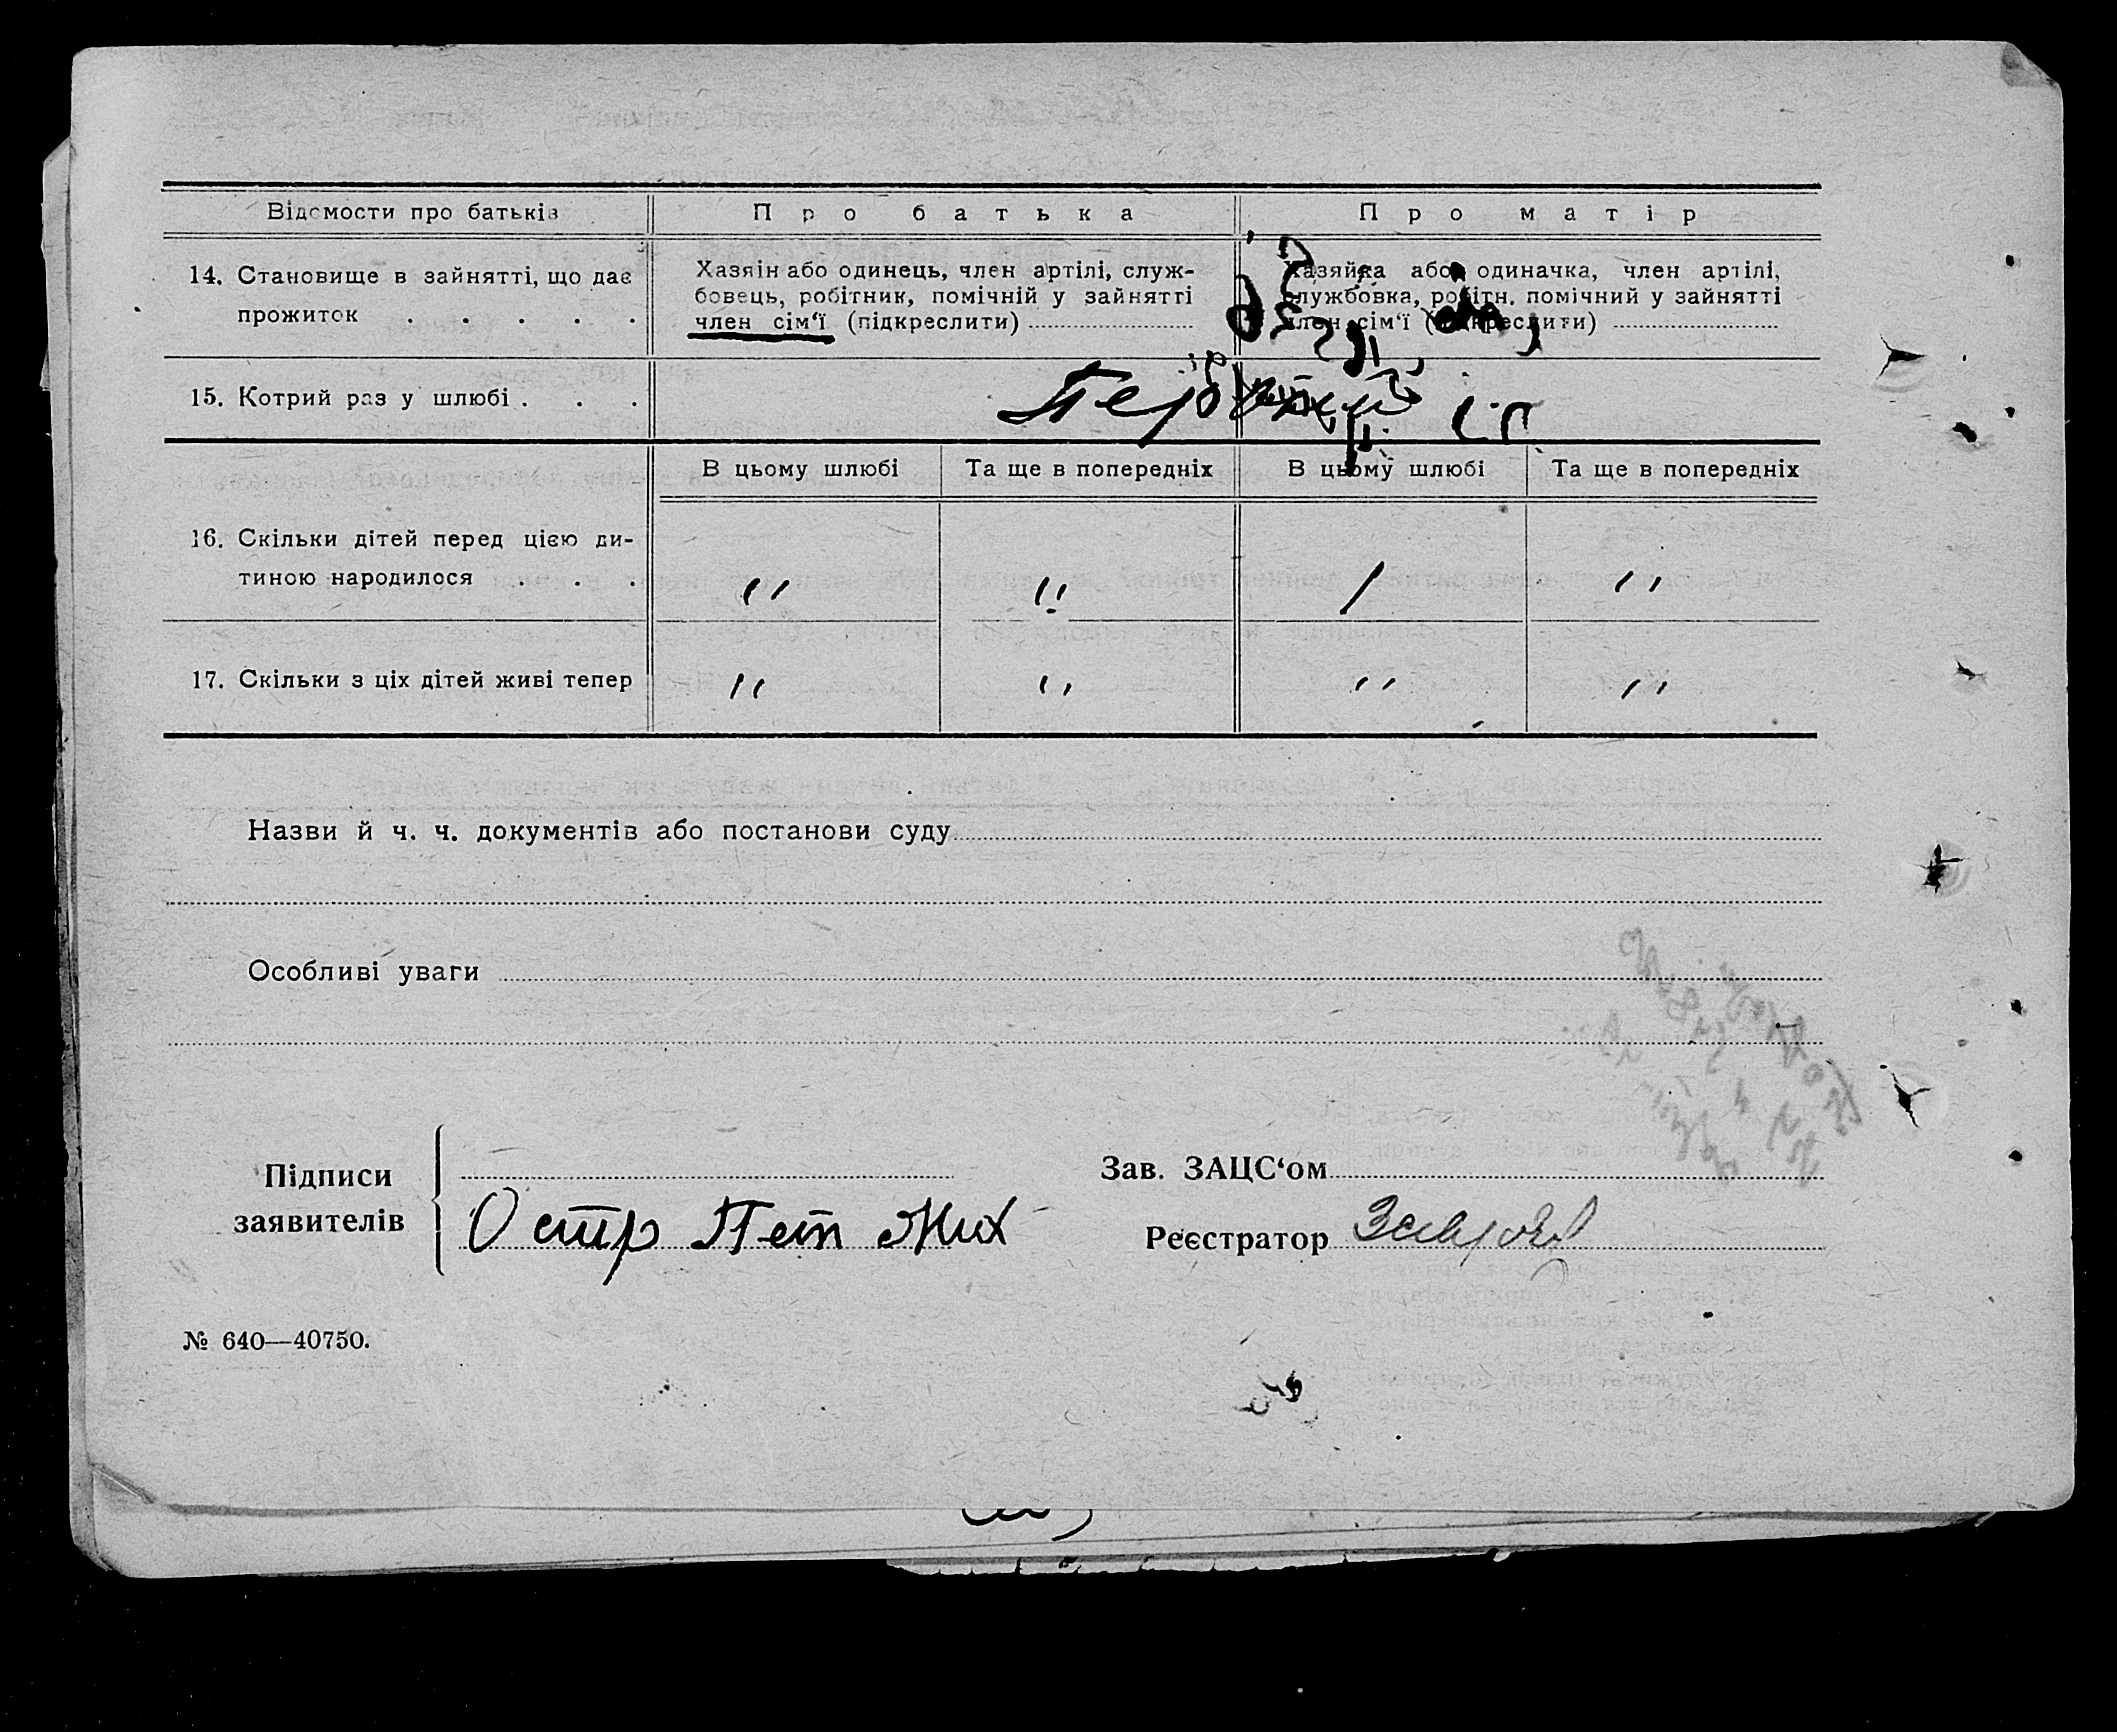 Відомости про батьків
Про батька
Про матір
14. Становище в зайнятті, що дає
прожиток . . . . .
Хазяїн або одинець, член артілі, служ-
бовець, робітник, помічній у зайнятті
член сім‘ї (підкреслити)
Хазяйка або одиначка, член артілі,
службовка, робітн. помічний у зайнятті
член сім‘ї (підкреслити)
15. Котрий раз у шлюбі . . .
В цьому шлюбі
Та ще в попередніх
В цьому шлюбі
Та ще в попередніх
16. Скільки дітей перед цією ди-
тиною народилося . . .
"
"
/
"
17. Скільки з ціх дітей живі тепер
"
"
"
"
Назви й ч. ч. документів або постанови суду
Особливі уваги
Підписи
заявителів
Остр Пет Мих
Зав. ЗАЦС‘ом
Реєстратор
№ 640—40750.